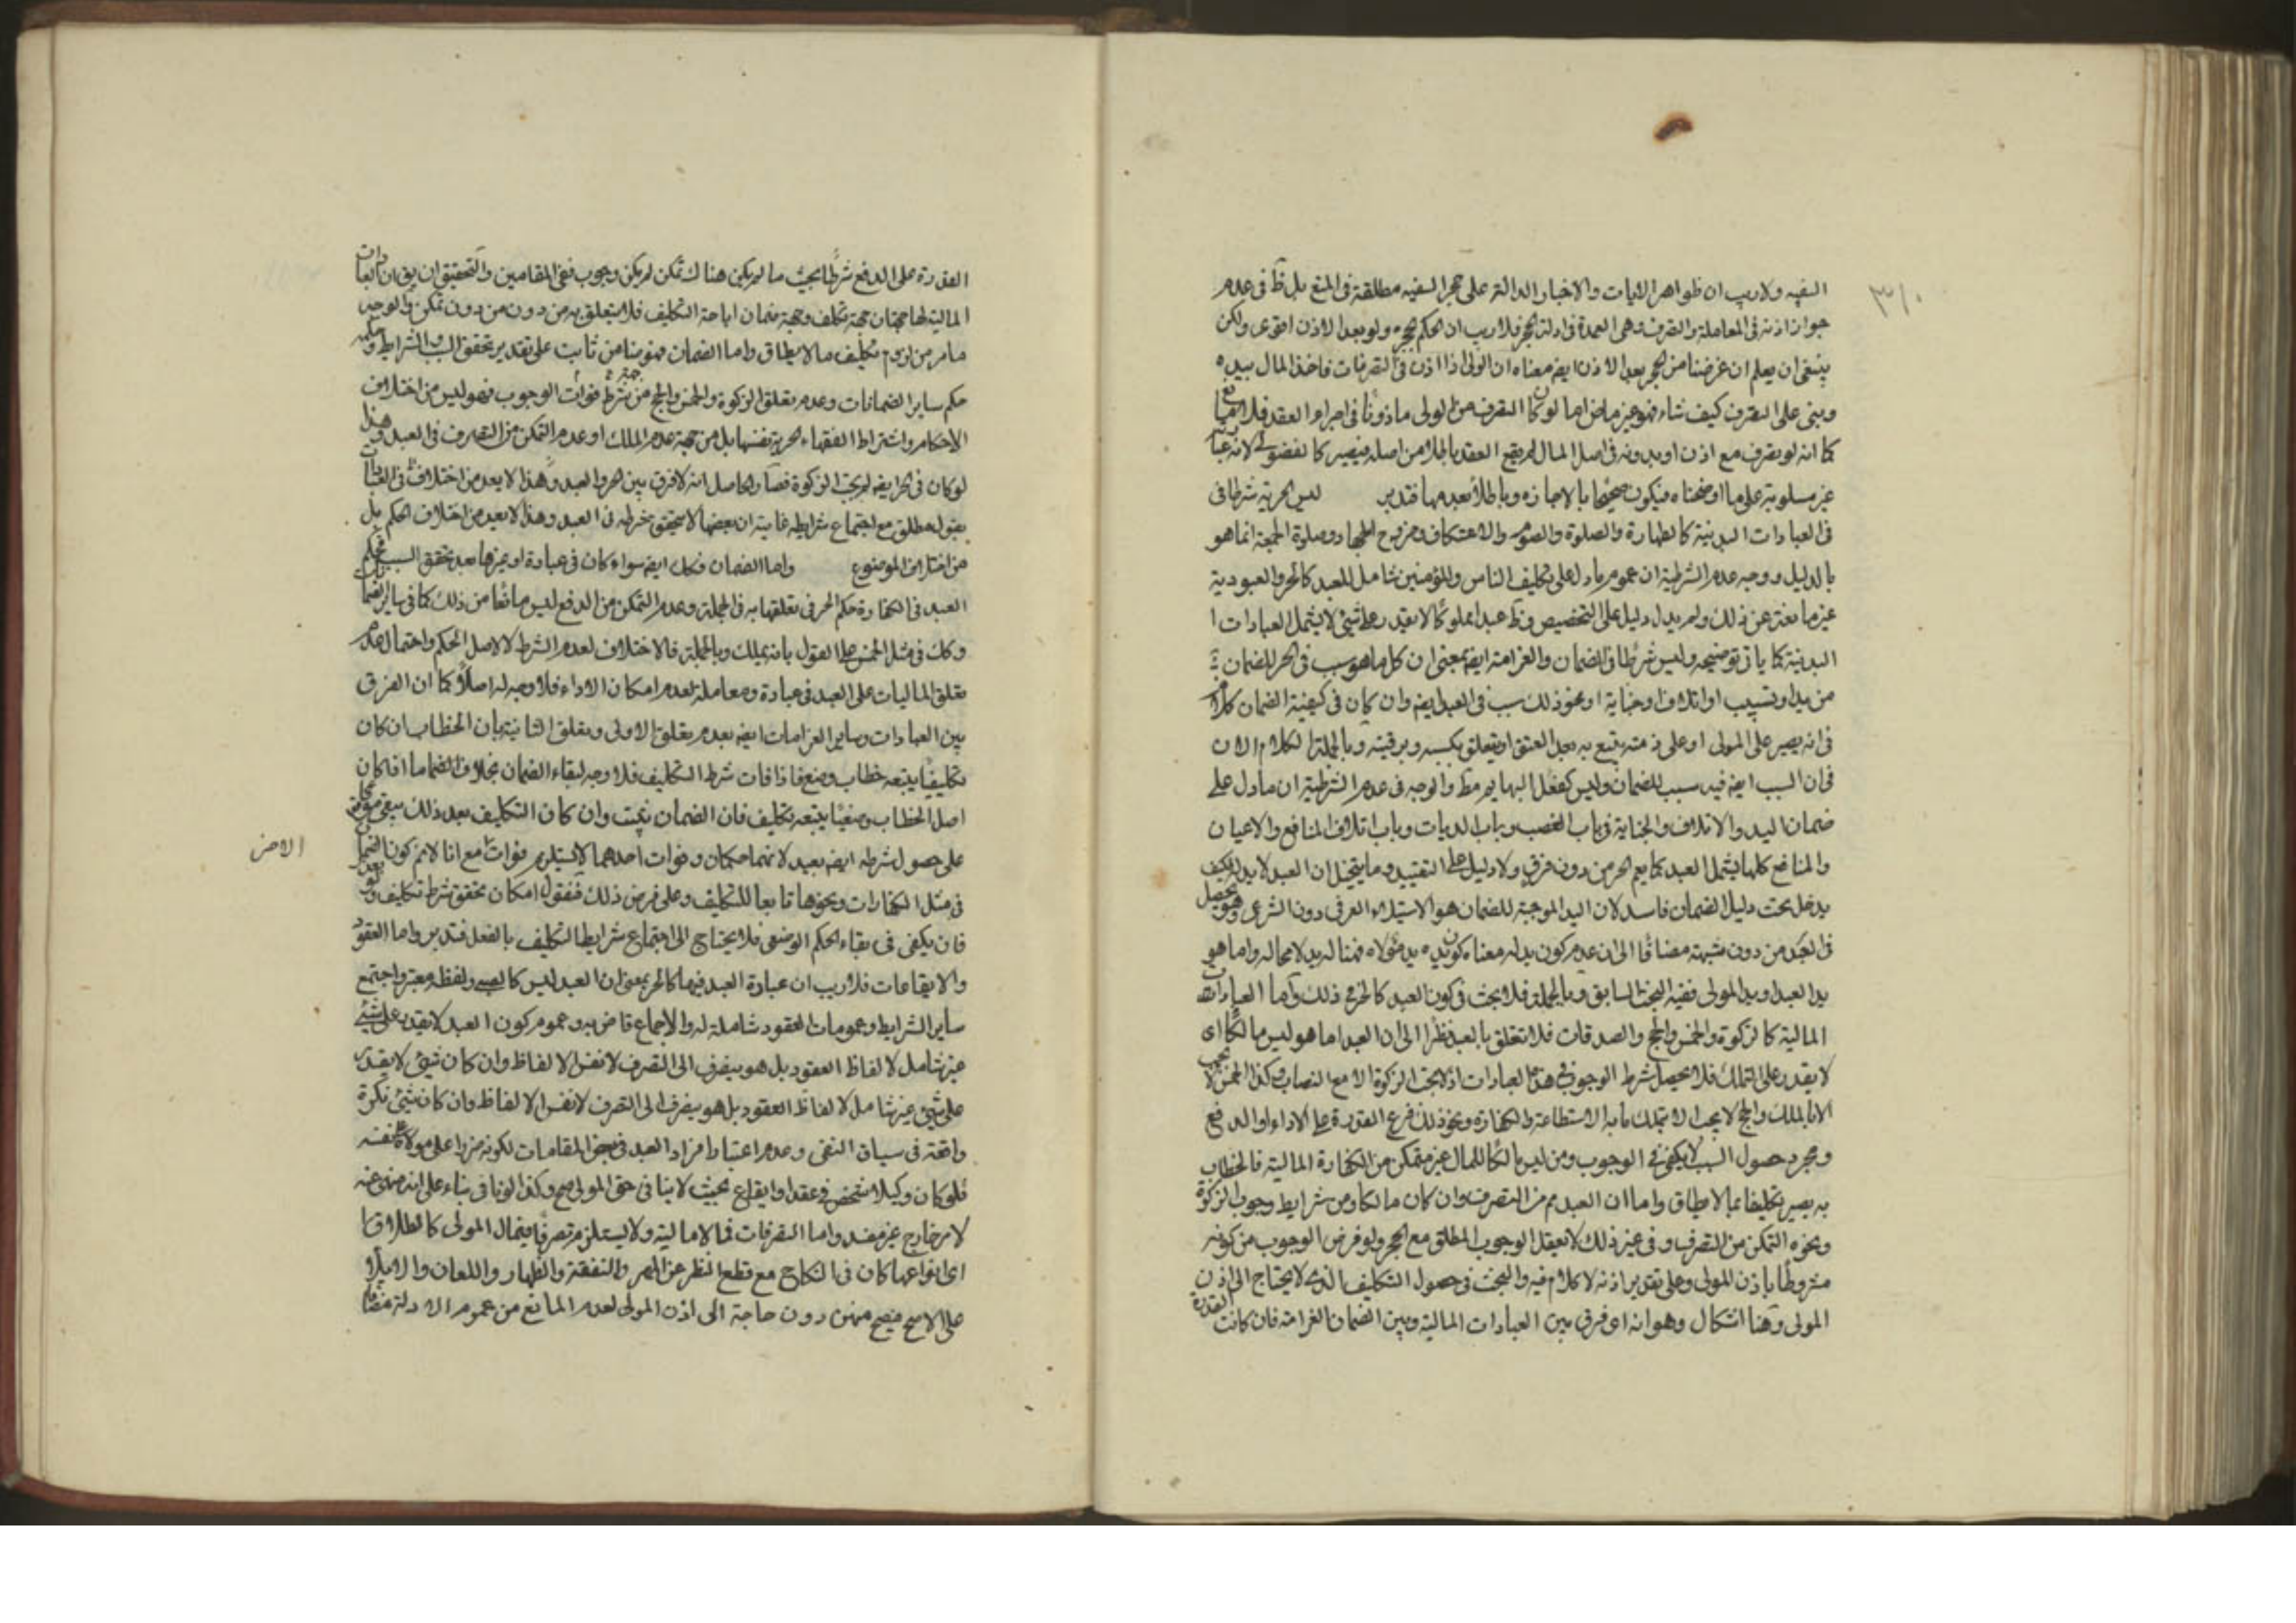 ٣١٠
السفيه ولا ريب ان ظواهر الايات والاخبار الدالة على حجر السفيه مطلقة في المنع بل ظ في عدم
جواز اذنه في المعاملة والتصرف وهي العمدة في ادلة الحجر فلا ريب ان الحكم بحجره ولو بعد الاذن اقوى ولكن
ينبغي ان يعلم ان غرضنا من الحجر بعد الاذن ايضا معناه ان الولي اذا اذن في التصرفات فاخذ المال بيده
وبنى على التصرف كيف شاء فهو غير ماض اما لو كان التصرف من الولي ماذونا في اجراء العقد فلا
كما انه لو تصرف مع اذن او بدونه في اصل المال لم يقع العقد باطلا من اصله فيصير كالفضولي لان
غير مسلوبة على ما اوضحناه فيكون صحيحا بالاجازة وباطلا بعدمها فتدبر ليس الحرية شرطا في
في العبادات البدنية كالطهارة والصلوة والصوم والاعتكاف وخروج الجهاد وصلوة الجمعة انما هو
بالدليل ووجه عدم الشرطية ان عموم ما دل على تكليف الناس والمؤمنين شامل للعبد كالحر والعبودية
غير مانعة عن ذلك ولم يدل دليل على التخصيص و عبدا مملوكا لا يقدر على شئ لا يشمل العبادات
البدنية كما ياتي توضيحه وليس شرطا في الضمان والغرامة ايضا بمعنى ان كل ما هو سبب في الحر للضمان
من يد او تسبيب او اتلاف او جناية او نحو ذلك سبب في العبد ايضا وان كان في كيفية الضمان كلام
في انه يصير على المولى او على ذمته يتبع به بعد العتق او يتعلق بكسبه وبرقبته وبالجملة الكلام الان
في ان السبب ايضا فيه سبب للضمان وليس كفعل البهايم مط والوجه في عدم الشرطية ان ما دل على
ضمان اليد والاتلاف والجناية في باب الغصب وباب الديات وباب اتلاف المنافع والاعيان
والمنافع كلها يشمل العبد كما يعم الحر من دون فرق ولا دليل على التقييد وما يتخيل ان العبد لا يد له فكيف
يدخل تحت دليل الضمان فاسد لان اليد الموجبة للضمان هو الاستيلاء العرفي دون الشرعي وهو يحصل
في العبد من دون شبهة مضافا الى ان عدم كون يد له معناه كون يده يد مولاه فهنا له يد لا محالة واما هو
يد العبد او يد المولى ففيه البحث السابق وبالجملة فلا بحث في كون العبد كالحر في ذلك واما العبادات
المالية كالزكوة والخمس والحج والصدقات فلا تتعلق بالعبد نظرا الى ان العبد اما هو ليس مالكا اي
لا يقدر على التملك فلا يحصل شرط الوجوب في هذه العبادات اذ لا يجب الزكوة الا مع النصاب وكذا الخمس لا يجب
الا بالملك والحج لا يجب الا بتملك ما به الاستطاعة والكفارة ونحو ذلك فرع القدرة على الاداء او الدفع
ومجرد حصول السبب لا يكفي في الوجوب ومن ليس مالكا للمال غير متمكن من الكفارة المالية فالخطاب
به يصير تكليفا بما لا يطاق واما ان العبد مم من التصرف وان كان مالكا ومن شرايط وجوب الزكوة
ونحوه التمكن من التصرف وفي غير ذلك لا يعقل الوجوب المطلق مع الحجر ولو فرض الوجوب من كونه
مشروطا باذن المولى وعلى تقدير اذنه لا كلام فيه والبحث في حصول التكليف الذي لا يحتاج الى اذن
المولى وهنا اشكال وهو انه اي فرق بين العبادات المالية وبين الضمان الغرامة فان كانت القدرة
القدرة على الدفع شرطا بحيث ما لم يكن هناك تمكن لم يكن وجوب ففي المقامين والتحقيق ان يق ان العبادات
المالية لها جهتان جهة تكلف وجهة ضمان اما جهة التكليف فلا يتعلق به من دون من دون تمكن والوجه
ما مر من لزوم تكليف ما لا يطاق واما الضمان فهو ثابت على تقدير تحقق السبب والشرايط
حكم ساير الضمانات وعدم تعلق الزكوة والخمس والحج من جهة فوات شرط الوجوب فهو ليس من اختلاف
الاحكام واشتراط الفقهاء الحرية نفسها بل من جهة عدم الملك او عدم التمكن من التصرف في العبد وهذا
لو كان في الحر ايضا لم يجب الزكوة والحاصل انه لا فرق بين الحر والعبد وهذا لا يعد من اختلاف في
بقول مطلق مع اجتماع شرايطه غاية ان بعضها لا يتحقق شرطه في العبد وهذا لا يعد من اختلاف الحكم بل
من اختلاف الموضوع واما الضمان فكك ايضا سواء كان في عبادة او غيرها بعد تحقق السبب فحكم
العبد في الكفارة حكم الحر في تعلقها به في الجملة وعدم التمكن من الدفع ليس مانعا من ذلك كما في ساير الضمانات
وكك في مثل الخمس على القول بانه يملك وبالجملة فالاختلاف لعدم الشرط لا لاصل الحكم واحتمال عدم
تعلق الماليات على العبد في عبادة ومعاملة لعدم امكان الاداء فلا وجه له اصلا كما ان الفرق
بين العبادات وساير الغرامات ايضا بعدم تعلق الاولى وتعلق الثانية بان الخطاب ان كان
تكليفيا يتبعه خطاب وضع فاذا فات شرط التكليف فلا وجه لبقاء الضمان بخلاف الضمان اذا كان
اصل الخطاب وضعيا يتبعه تكليف فان الضمان يثبت وان كان التكليف بعد ذلك يبقى
على حصول شرطه ايضا بعيد لانهما حكمان وفوات احدهما لا يستلزم فوات مع انا لا نم كون الضمان
الاخر
في مثل الكفارات ونحوها تابعا للتكليف وعلى فرض ذلك فنقول امكان تحقق شرط تكليف
فان يكفي في بقاء الحكم الوضعي فلا يحتاج الى اجتماع شرايط التكليف بالفعل فتدبر واما العقود
والايقاعات فلا ريب ان عبارة العبد فيها كالحر بمعنى ان العبد ليس كالصبي ولفظه معتبر واجتمع
ساير الشرايط وعمومات العقود شاملة له والاجماع قاض به وعموم كون العبد لا يقدر على شئ
غير شامل لالفاظ العقود بل هو ينصرف الى التصرف لا نفس الالفاظ وان كان شئ لا يقدر
على شئ غير شامل لالفاظ العقود بل هو ينصرف الى التصرف لا نفس الالفاظ وان كان شئ نكرة
واقعة في سياق النفي وعدم اعتبار اقرار العبد في بعض المقامات لكونه ضررا على مولاه
فلو كان وكيلا لشخص في عقد او ايقاع بحيث لا ينافي حق المولى صح وكذا لو نافى بناء على انه منهي عنه
لامر خارج غير مفسد واما التصرفات فما لا مالية ولا يستلزم تصرفا في مال المولى كالطلاق
اي انواعها كان في النكاح مع قطع النظر عن المهر والنفقة والظهار واللعان والايلاء
على الاصح فيصح منه من دون حاجة الى اذن المولى لعدم المانع من عموم الادلة مضافا